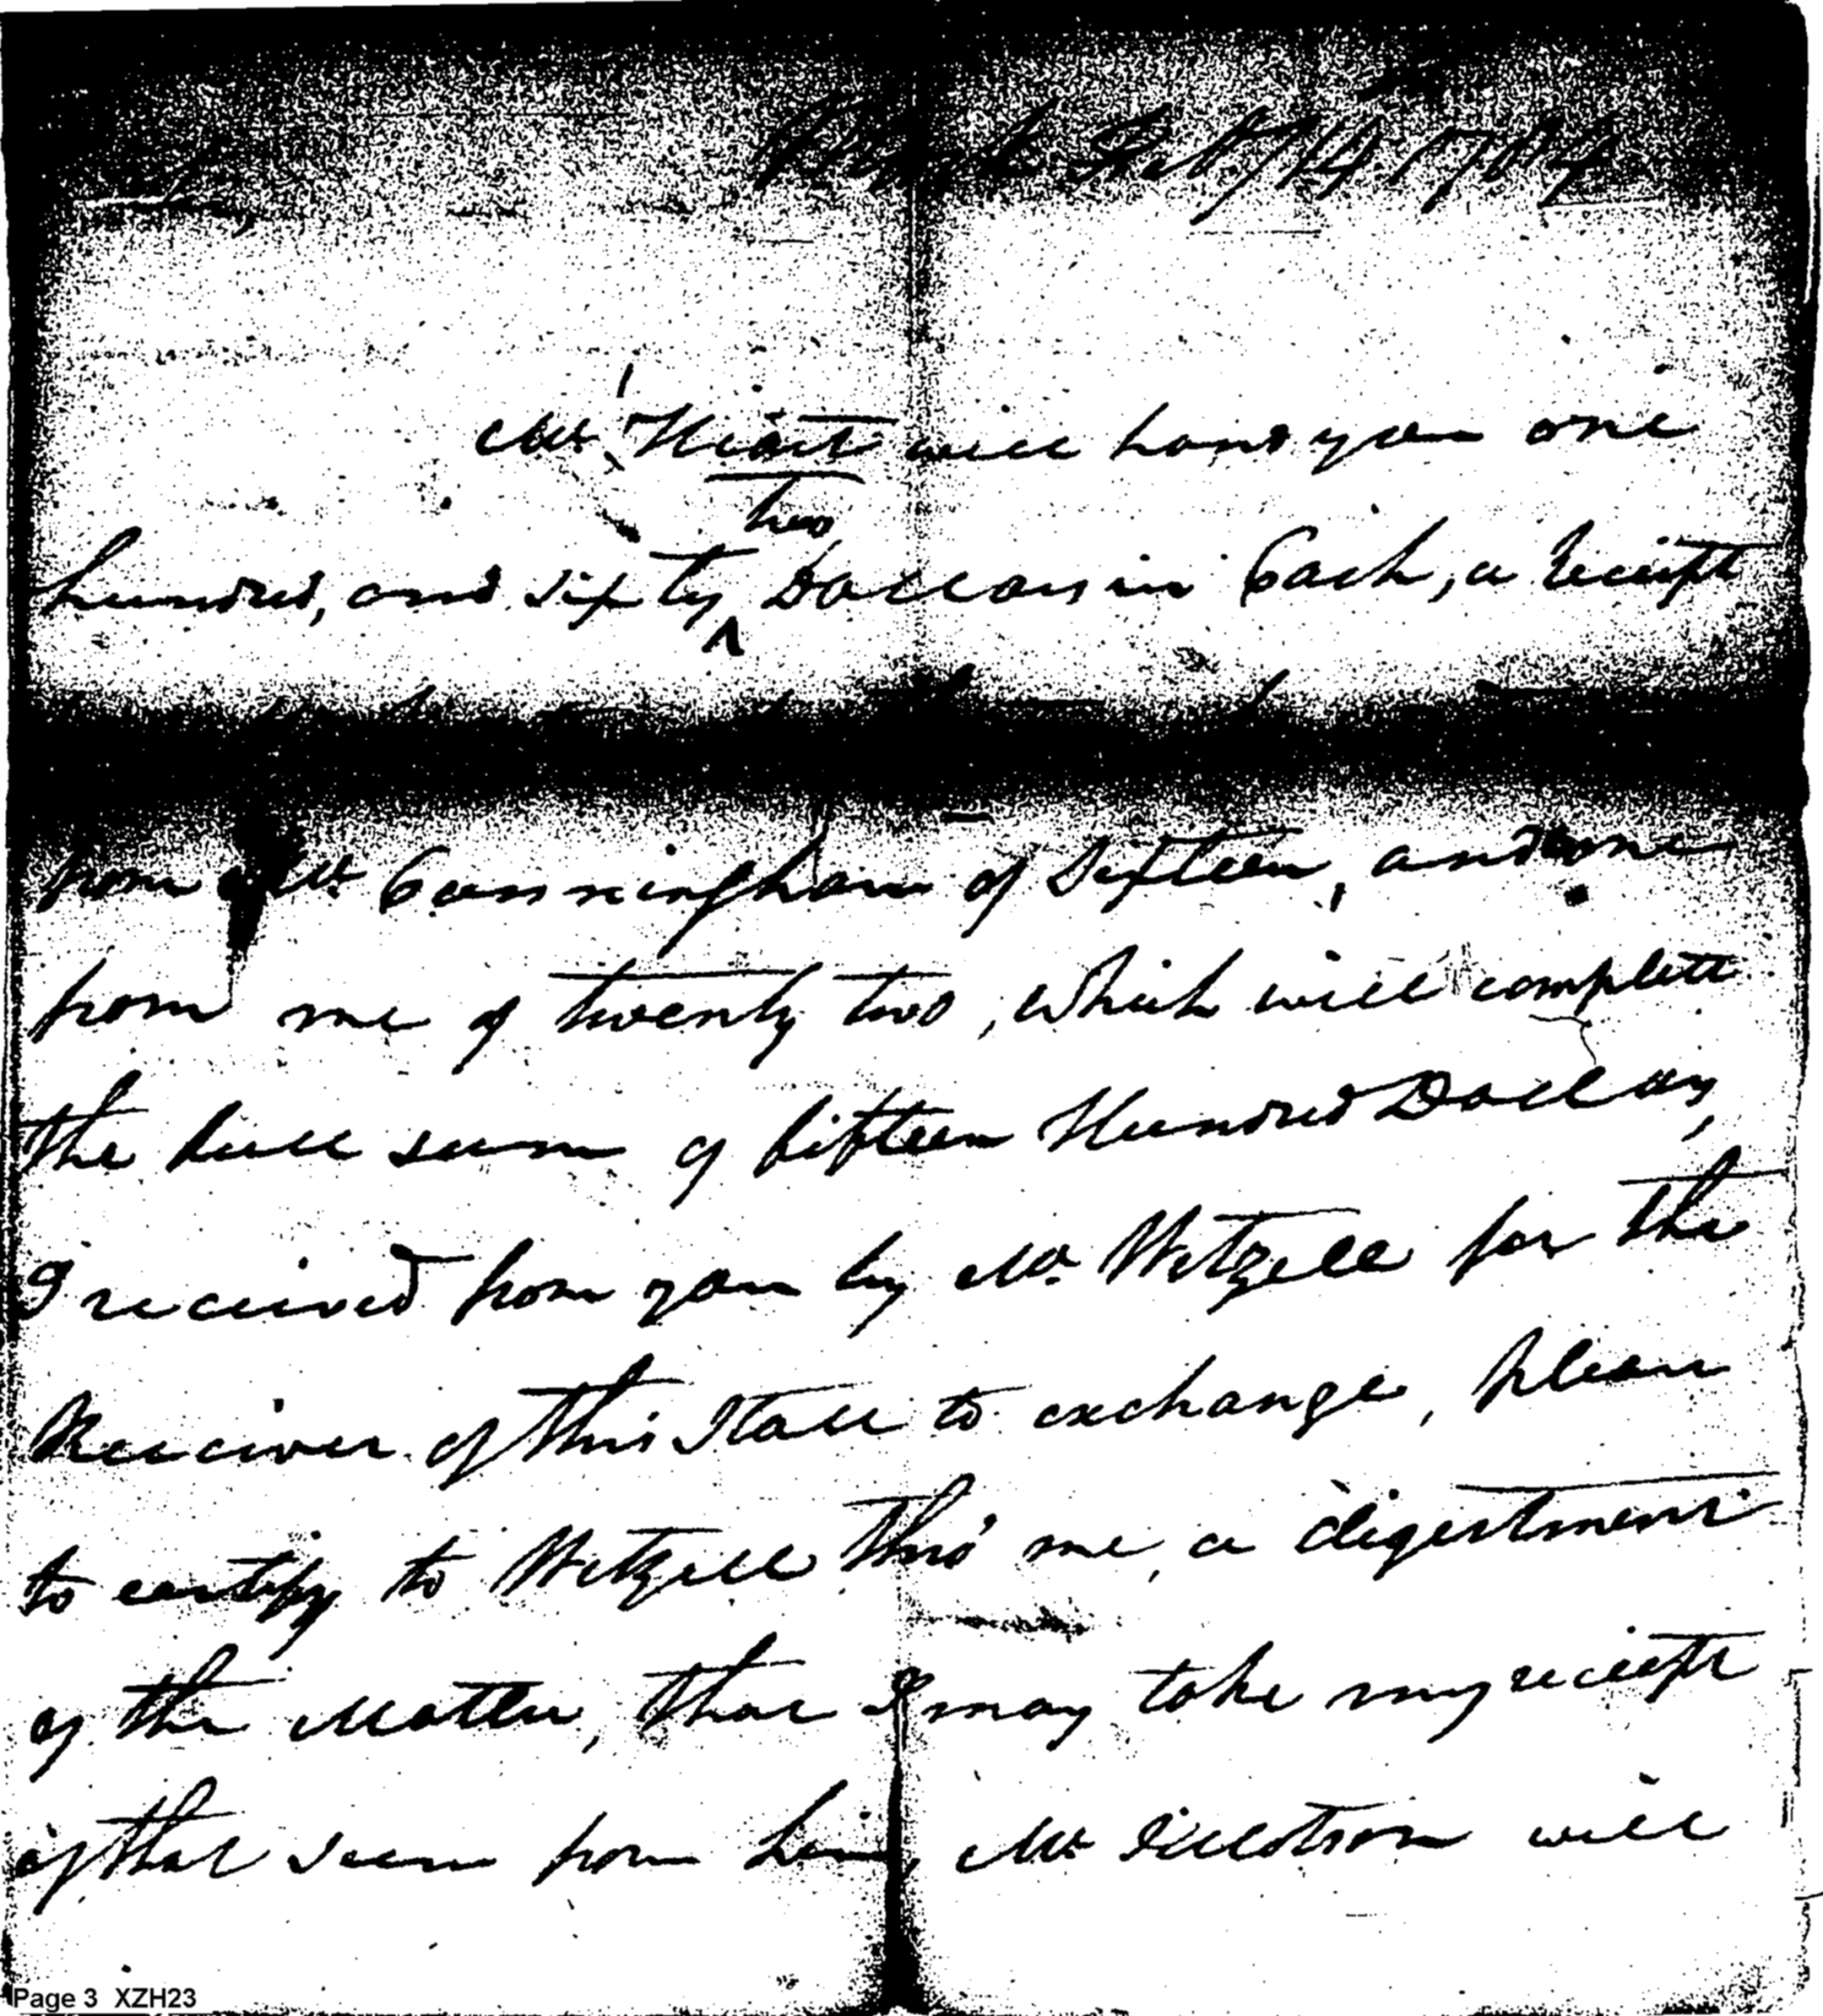 Feb 14 17
Mr. Hiart will hand you one
two
hundred, and sixty ^ Dollars in Cash, a Receipt
from Mr Cunningham of Sixteen, and one
from me of twenty two, which will complete
the full sum of fifteen Hundred Dollars,
I received from you by Mr. Witzell for the
Receiver of this State to exchange, please
to certify to Witzell thro' me, a digestment
of the Matter, that I may take my receipt
of that sum from him, Mr Tillotson will
Page 3 XZH23